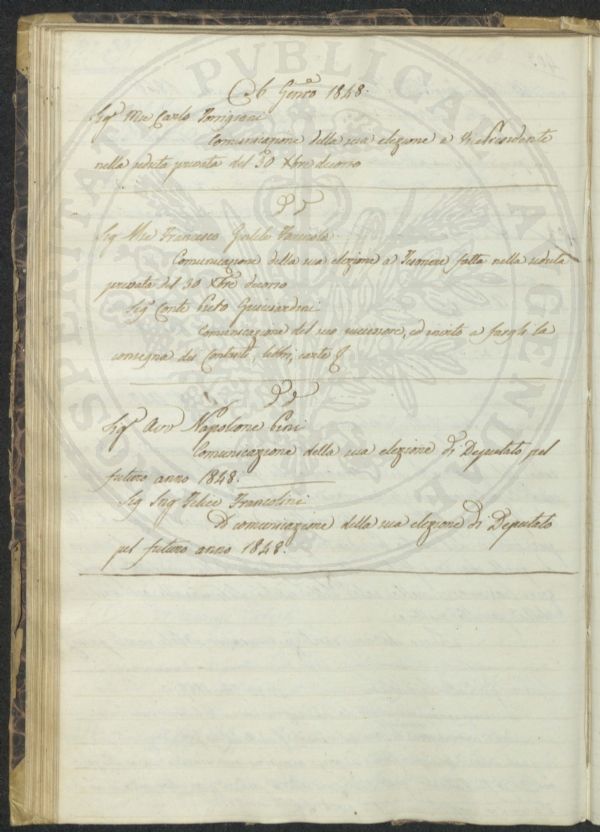 6 Genro 1848.
Sigr Mse Carlo Torrigiani
Comunicazione della sua elezione a VicePresidente
nella seduta privata del 30 Xbre decorso
Sig Mse Francesco Farinola
Comunicazione della sua elezione a fatta nella seduta
privata del 30 Xbre decorso
Sigr Conte Piero Guicciardini
Comunicazione del suo successore, ed invito a fargli la
consegna dei Contanti, libri, carte
Sigr Avv Napoleone Pini
Comunicazione della sua elezione di Deputato pel
futuro anno 1848.
Sig Ing Felice Francolini
Di comunicazione della sua elezione di Deputato
pel futuro anno 1848.
PVBLICAE